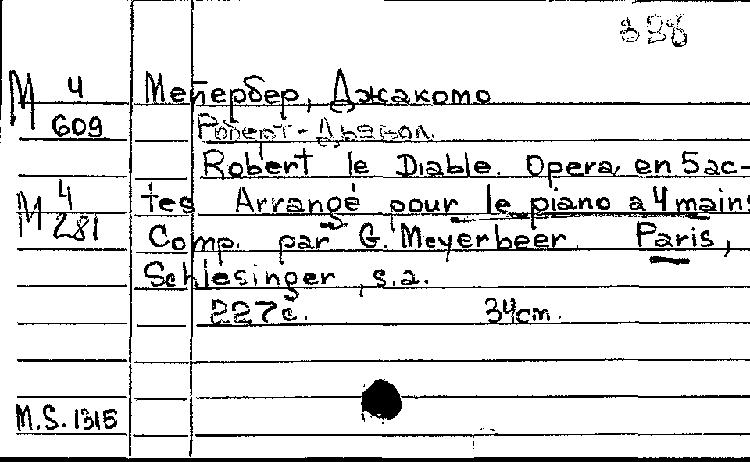 338
М 4 Мейербер, Джакомо
609 Роберт-Дьявол.
Robert le Diable. Opera en 5 ac-
M 4 tes Arrangé pour le piano a 4 mains
281 Comp. par G. Meyerbeer. Paris,
Schlesinger, s.a.
227 с. 34cm.
M.S. 1315